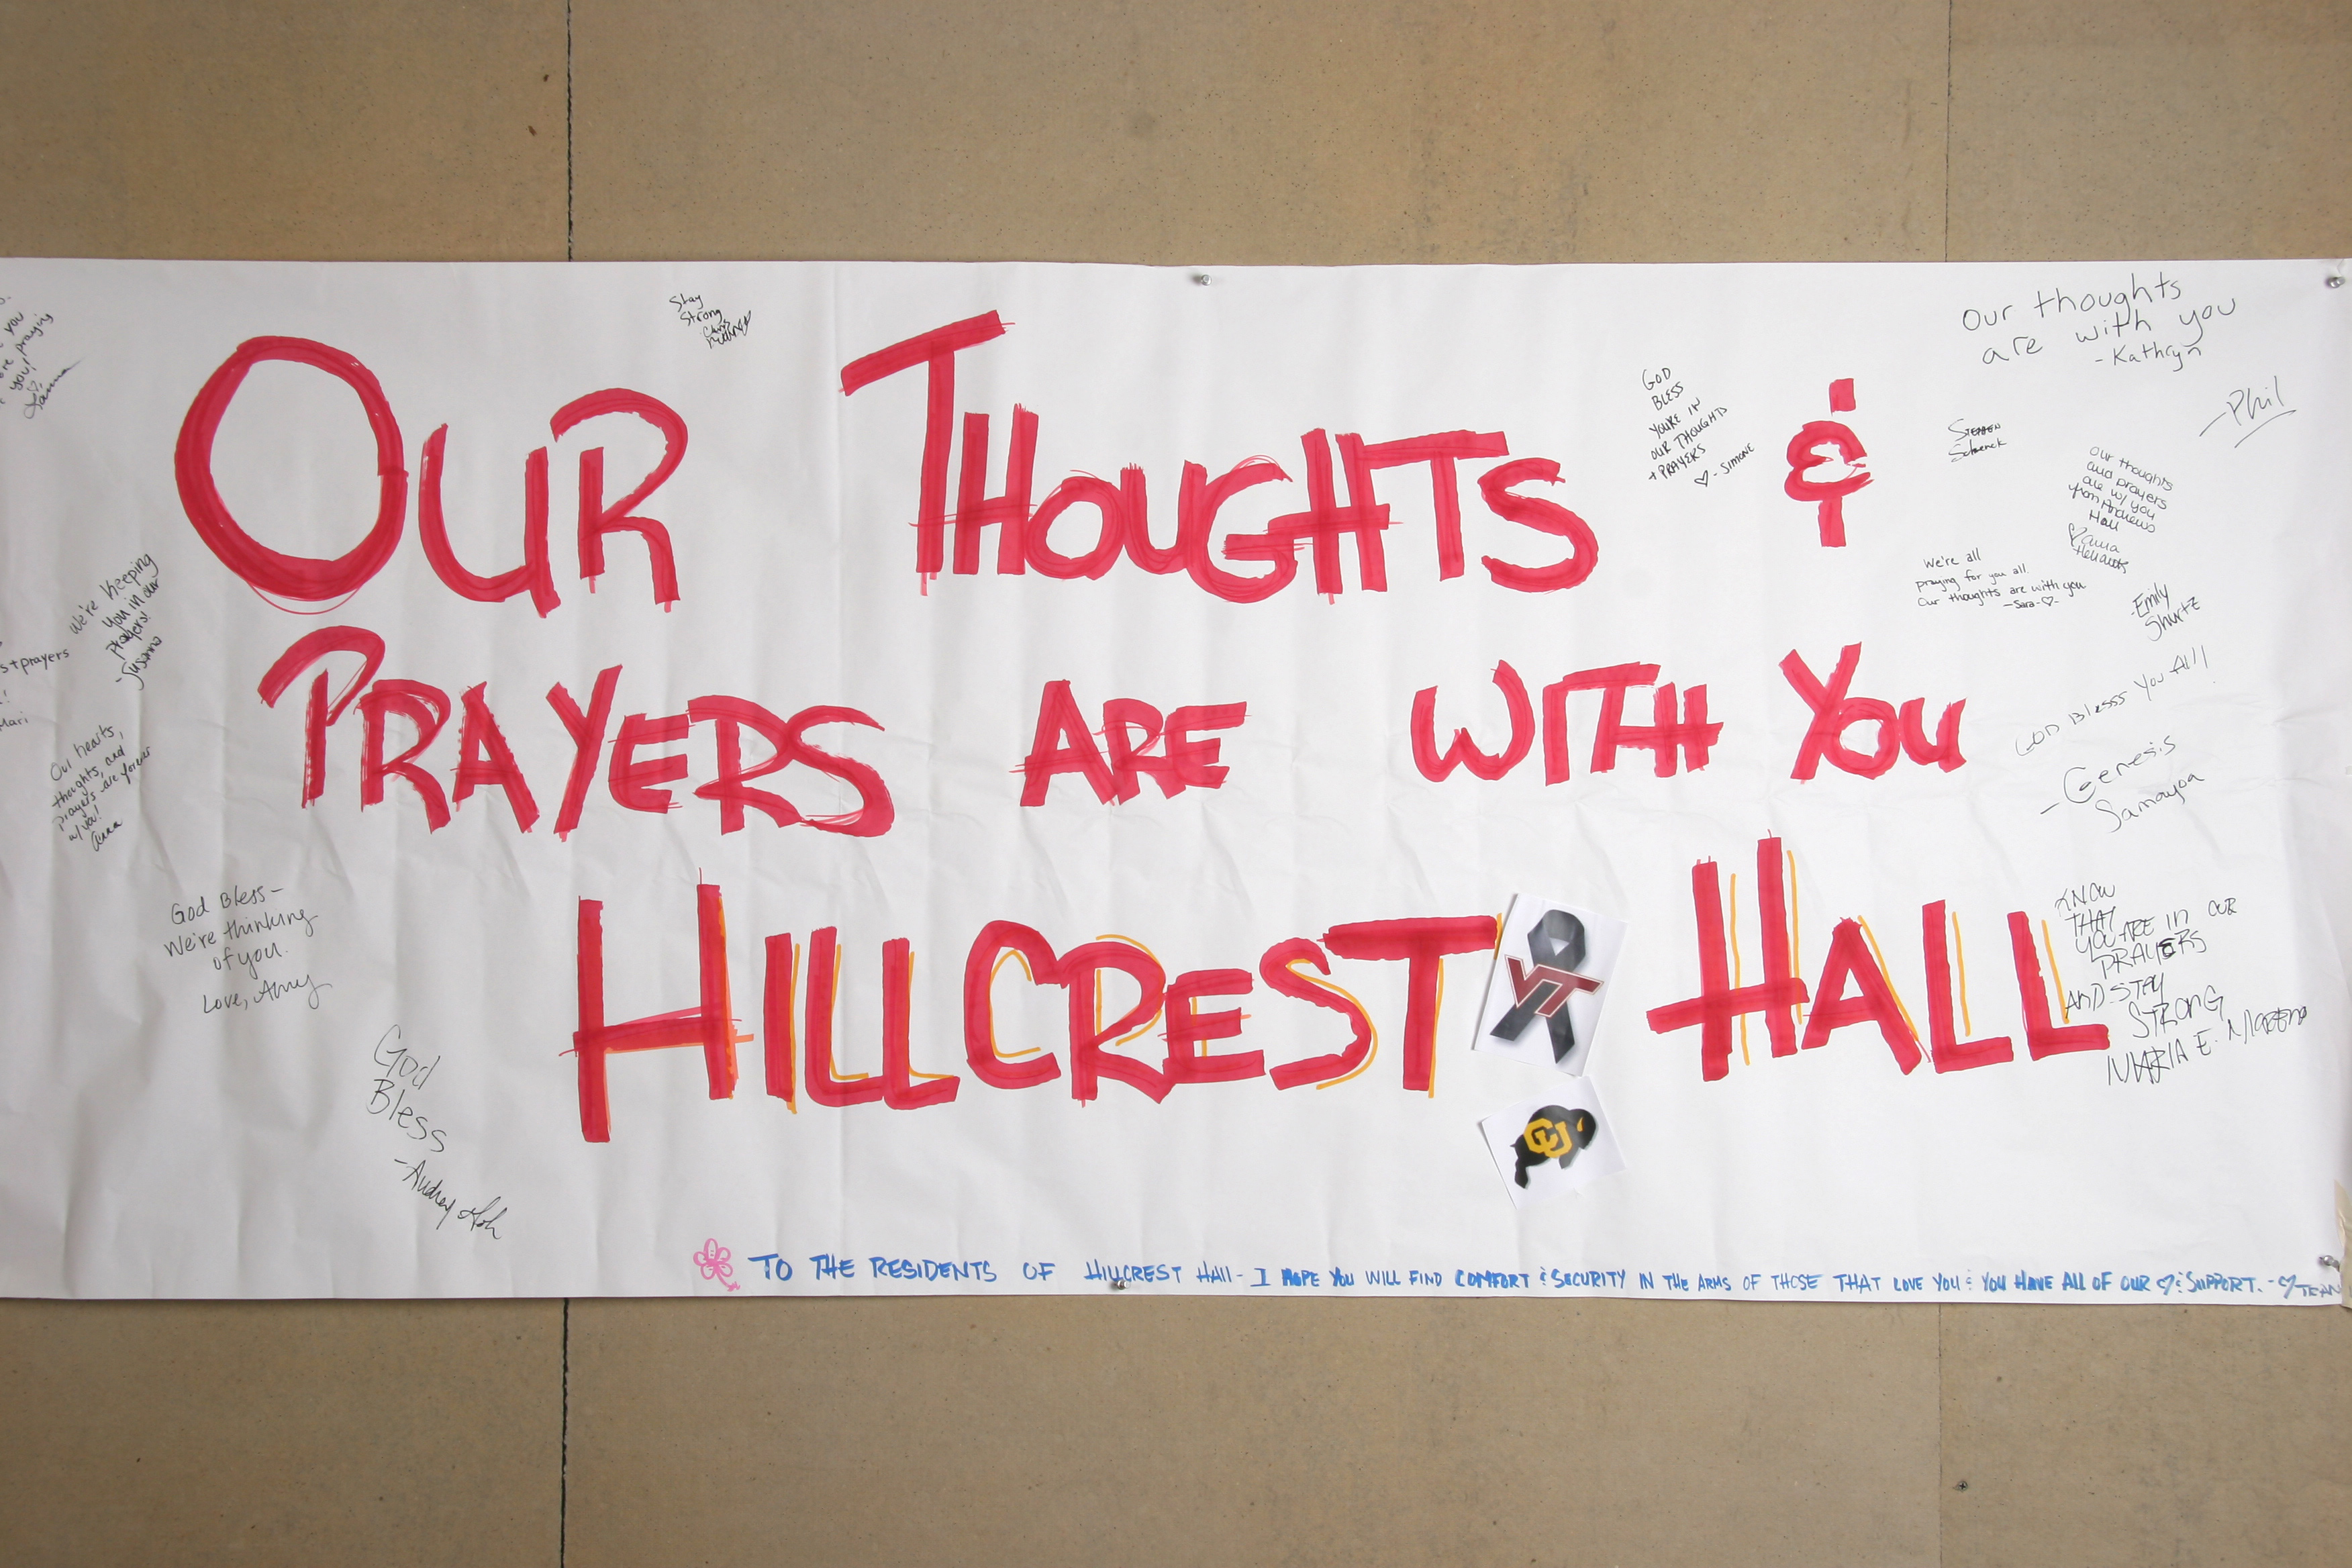 OUR THOUGHTS &
PRAYERS ARE WITH YOU
HILLCREST HALL
VT
CU
you
praying
you!
We're keeping
you in our
prayers!
-Susanna
s + prayers
Mari
Our hearts,
thoughts, and
prayers are forever
w/ you!
God Bless-
We're thinking
of you.
Love, Amy
God
Bless
-Audrey
Stay
Strong
GOD
BLESS
YOU'RE IN
OUR THOUGHTS
+ PRAYERS
♡ - SIMONE
Our thoughts
are with you
- Kathryn
-Phil
Our thoughts
and prayers
are w/ you
from Andrews
Hall
We're all
praying for you all.
Our thoughts are with you
-Sara-♡-
-Emily
Shurtz
GOD Blesss You All!
- Genesis
Samayoa
KNOW
THAT
YOU ARE IN OUR
PRAYERS
AND STAY
STRONG
MARIA E.
TO THE RESIDENTS OF HILLCREST HAll - I HOPE YOU WILL FIND COMFORT & SECURITY IN THE ARMS OF THOSE THAT LOVE YOU & YOU HAVE ALL OF OUR ♡ & SUPPORT. - ♡